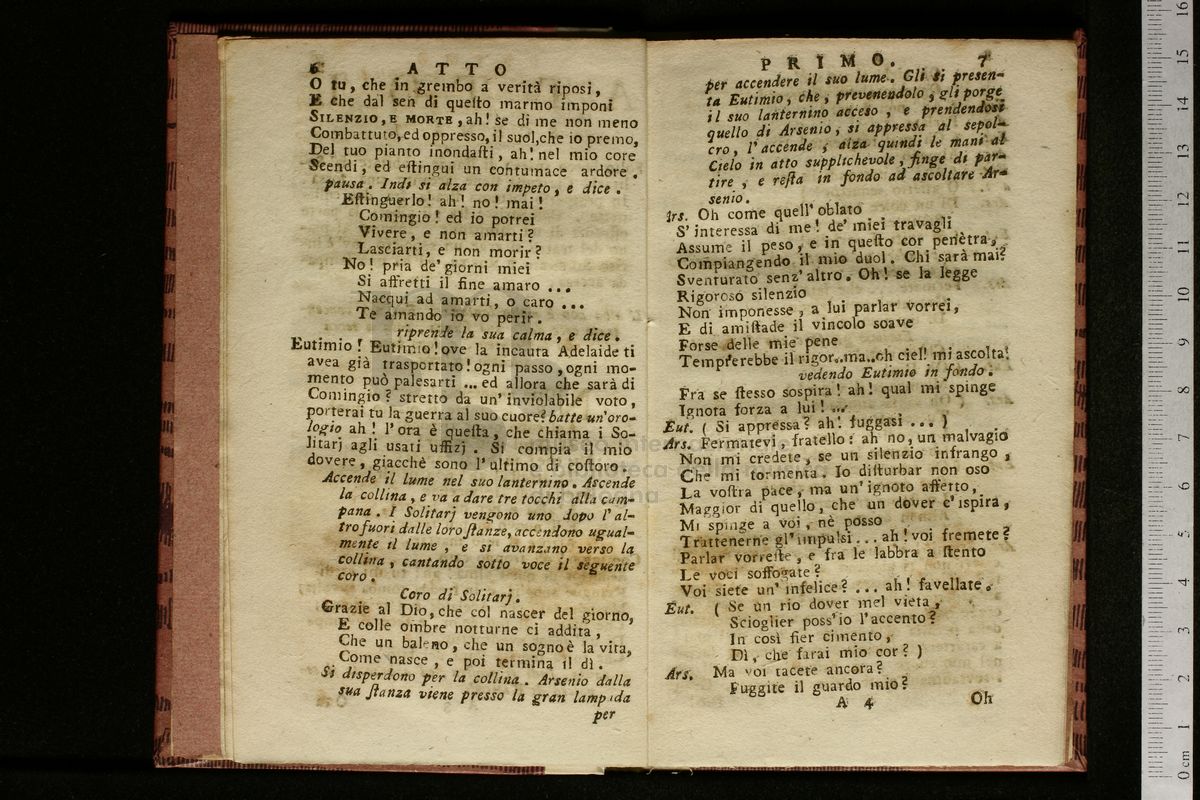 6 ATTO
O tu, che in grembo a verità riposi,
E che dal sen di queſto marmo imponi
SILENZIO, E MORTE, ah! se di me non meno
Combattuto, ed oppresso, il suol, che io premo,
Del tuo pianto inondaſti, ah! nel mio core
Scendi, ed eſtingui un contumace ardore.
pausa. Indi si alza con impeto, e dice.
Eſtinguerlo! ah! no! mai!
Comingio! ed io potrei
Vivere, e non amarti?
Lasciarti, e non morir?
No! pria de' giorni miei
Si affretti il fine amaro ...
Nacqui ad amarti, o caro ...
Te amando io vo perir.
riprende la sua calma, e dice.
Eutimio! Eutimio! ove la incauta Adelaide ti
avea già trasportato! ogni passo, ogni mo-
mento può palesarti ... ed allora che sarà di
Comingio? stretto da un' inviolabile voto,
porterai tu la guerra al suo cuore? batte un' oro-
logio ah! l'ora è queſta, che chiama i So-
litarj agli usati uffizj. Si compia il mio
dovere, giacchè sono l'ultimo di coſtoro.
Accende il lume nel suo lanternino. Ascende
la collina, e va a dare tre tocchi alla cam-
pana. I Solitarj vengono uno dopo l'al-
tro fuori dalle loro ſtanze, accendono ugual-
mente il lume, e si avanzano verso la
collina, cantando sotto voce il seguente
coro.
Coro di Solitarj.
Grazie al Dio, che col nascer del giorno,
E colle ombre notturne ci addita,
Che un baleno, che un sogno è la vita,
Come nasce, e poi termina il dì.
Si disperdono per la collina. Arsenio dalla
sua ſtanza viene presso la gran lampada
per
PRIMO. 7
per accendere il suo lume. Gli si presen-
ta Eutimio, che, prevenendolo, gli porge
il suo lanternino acceso, e prendendosi
quello di Arsenio, si appressa al sepol-
cro, l'accende; alza quindi le mani al
Cielo in atto supplichevole, finge di par-
tire, e reſta in fondo ad ascoltare Ar-
senio.
Ars. Oh come quell' oblato
S' interessa di me! de' miei travagli
Assume il peso, e in queſto cor penètra,
Compiangendo il mio duol. Chi sarà mai?
Sventurato senz' altro. Oh! se la legge
Rigoroso silenzio
Non imponesse, a lui parlar vorrei,
E di amiſtade il vincolo soave
Forse delle mie pene
Tempererebbe il rigor..ma..oh ciel! mi ascolta!
vedendo Eutimio in fondo.
Fra se ſtesso sospira! ah! qual mi spinge
Ignota forza a lui! ...
Eut. ( Si appressa? ah! fuggasi ... )
Ars. Fermatevi, fratello: ah no, un malvagio
Non mi credete, se un silenzio infrango,
Che mi tormenta. Io diſturbar non oso
La voſtra pace, ma un' ignoto affetto,
Maggior di quello, che un dover c' ispira,
Mi spinge a voi, nè posso
Trattenerne gl' impulsi ... ah! voi fremete?
Parlar vorreſte, e fra le labbra a ſtento
Le voci soffogate?
Voi siete un' infelice? ... ah! favellate.
Eut. ( Se un rio dover mel vieta,
Scioglier poss'io l'accento?
In così fier cimento,
Dì, che farai mio cor? )
Ars. Ma voi tacete ancora?
Fuggite il guardo mio?
A 4 Oh
0 cm 1 2 3 4 5 6 7 8 9 10 11 12 13 14 15 16